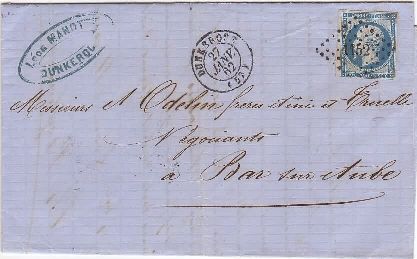 LEON MAROT
DUNKERQUE
DUNKERQUE
27
JANV.
62
Messieurs A Odelin frères Aîné et
Négociants
à Bar sur Aube